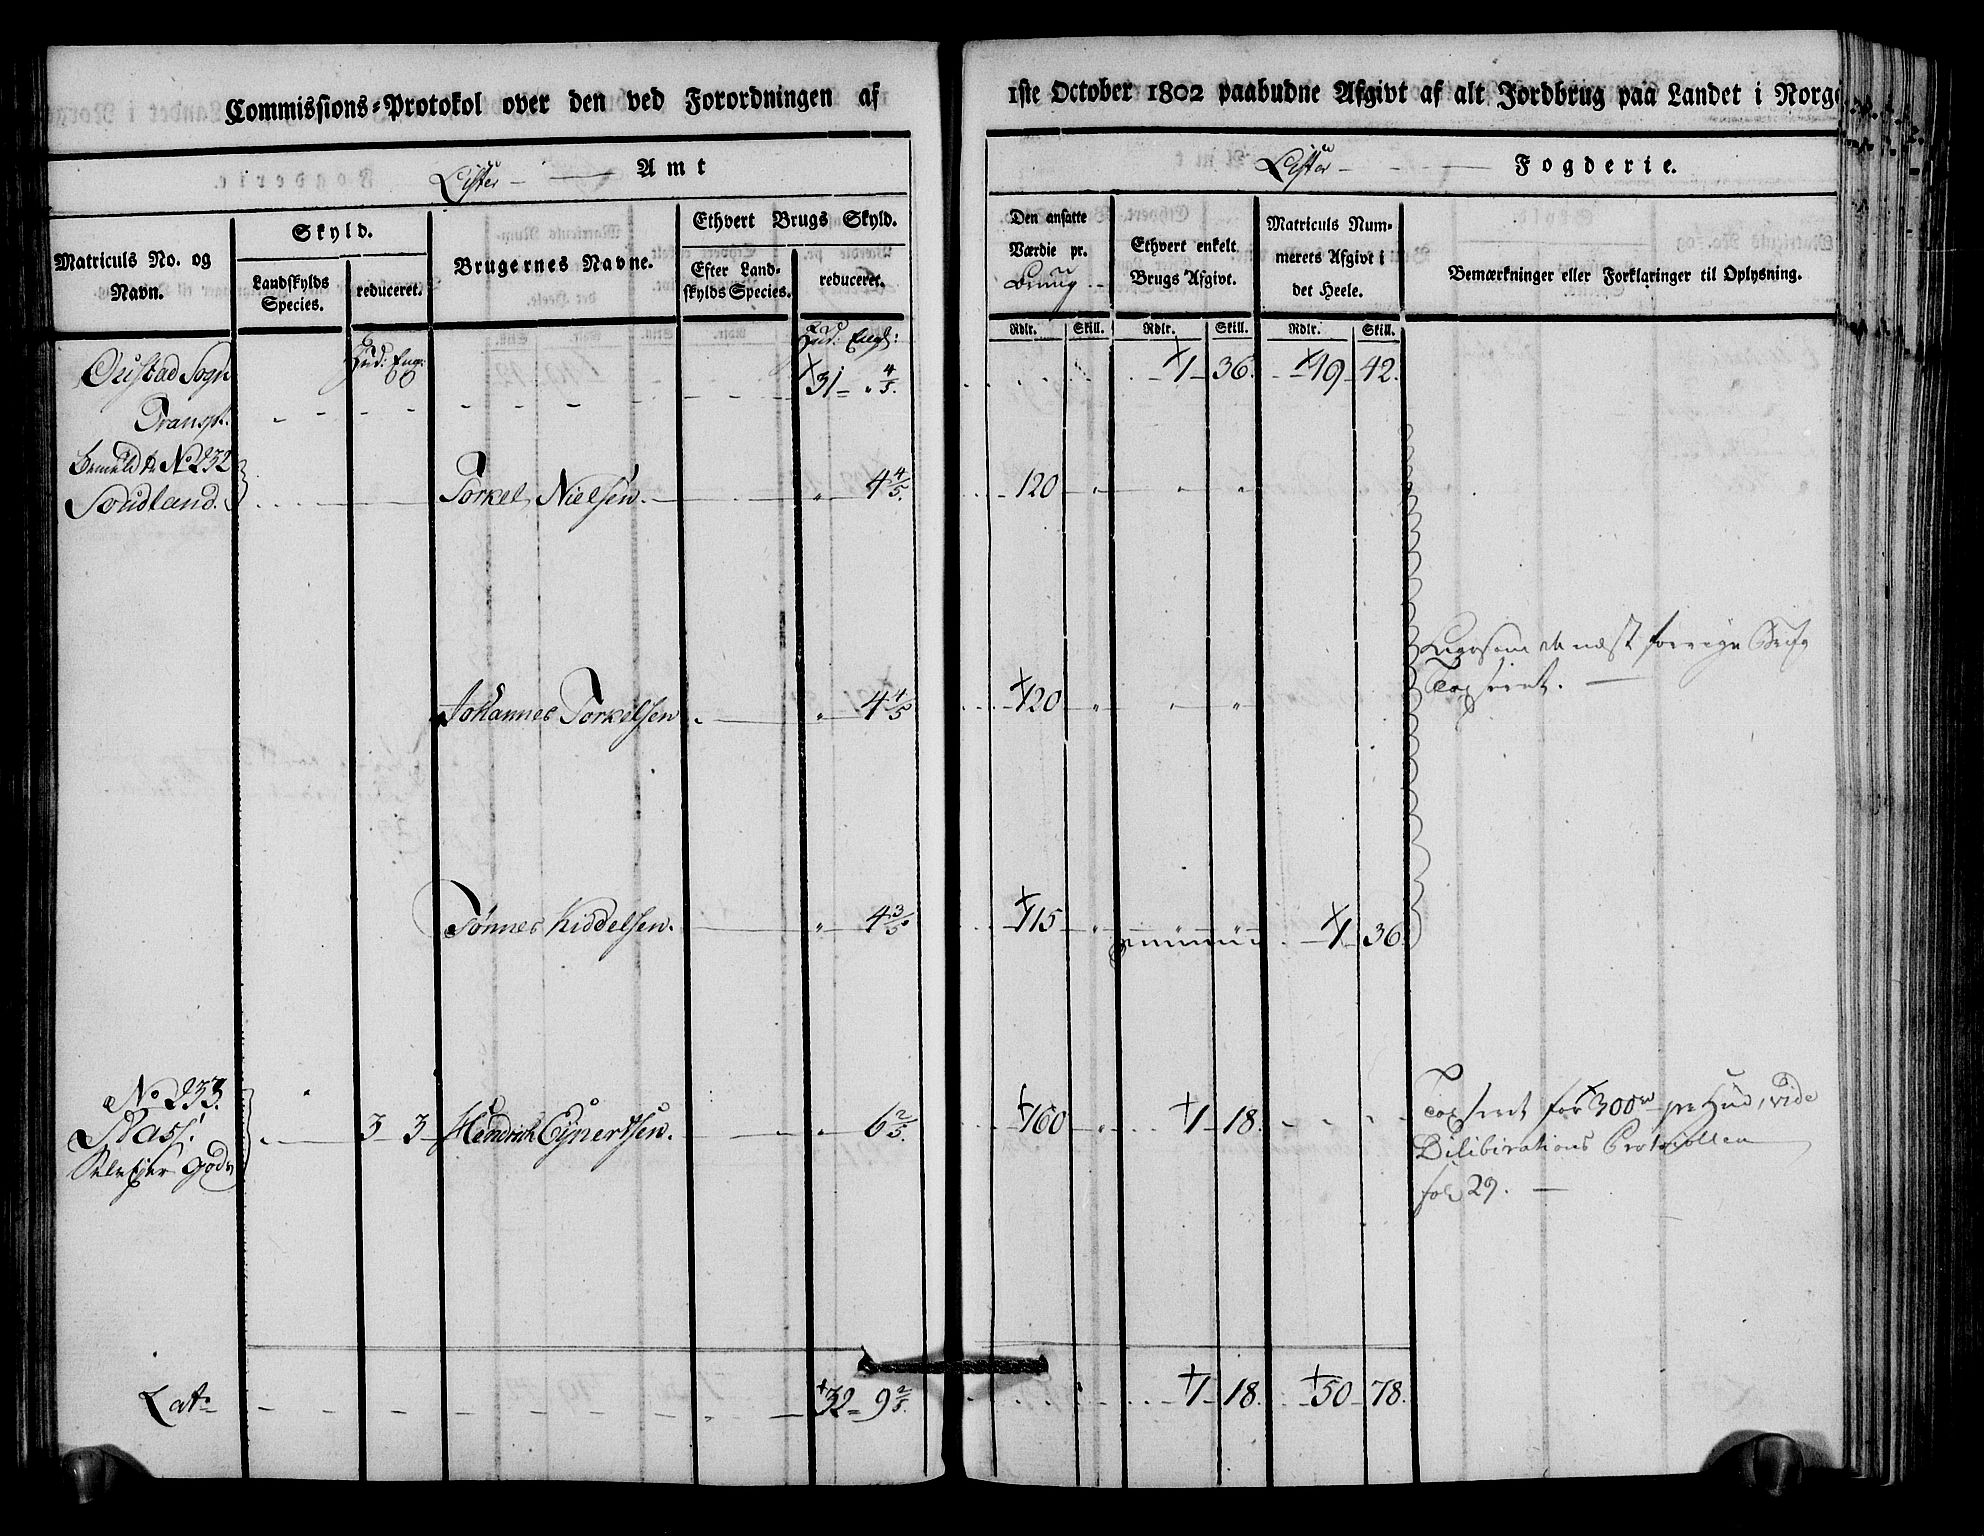 Commissions-Protokol over den ved Forordningen af 1ste October 1802 paabudne Afgivt af alt Jordbrug paa Landet i Norge
Lister Amt
Lister Fogderie.
Matriculs No. og Navn.
Skyld.
Landskylds Species.
reduceret.
Brugernes Navne.
Ethvert Brugs Skyld.
Efter Landskylds Species.
reduceret.
Den ansatte Værdie pr. Bruug
Ethvert enkelt Brugs Afgivt.
Matriculs Nummerets Afgivt i det Heele.
Bemærkninger eller Forklaringer til Oplysning.
Rdlr. Skill. Rdlr. Skill. Rdlr. Skill.
Hud: Eng:
Hud: Engl:
Øeistad Sogn 31 - " 4/5. 1 - 36. 49 - 42.
Transpt.
No 232
Soudland. Torkel Nielsen. " 4 4/5. 120 " " "
Ligesom de næst forrige
Taxseret.
Johannes Torkelsen " 4 4/5 120 " " "
Tønnes Kiddelsen. " 4 3/5 115 " 1 - 36.
No 233.
3 3 Hendrich Eÿnertsen. " 6 2/5. 160 " 1 - 18.
Gods
Taxseret for 300 rd pr Hud, vide
Deliberations Protocollen
fol 29.
Lats 32 - 9 2/5. 1 - 18. 50 - 78.